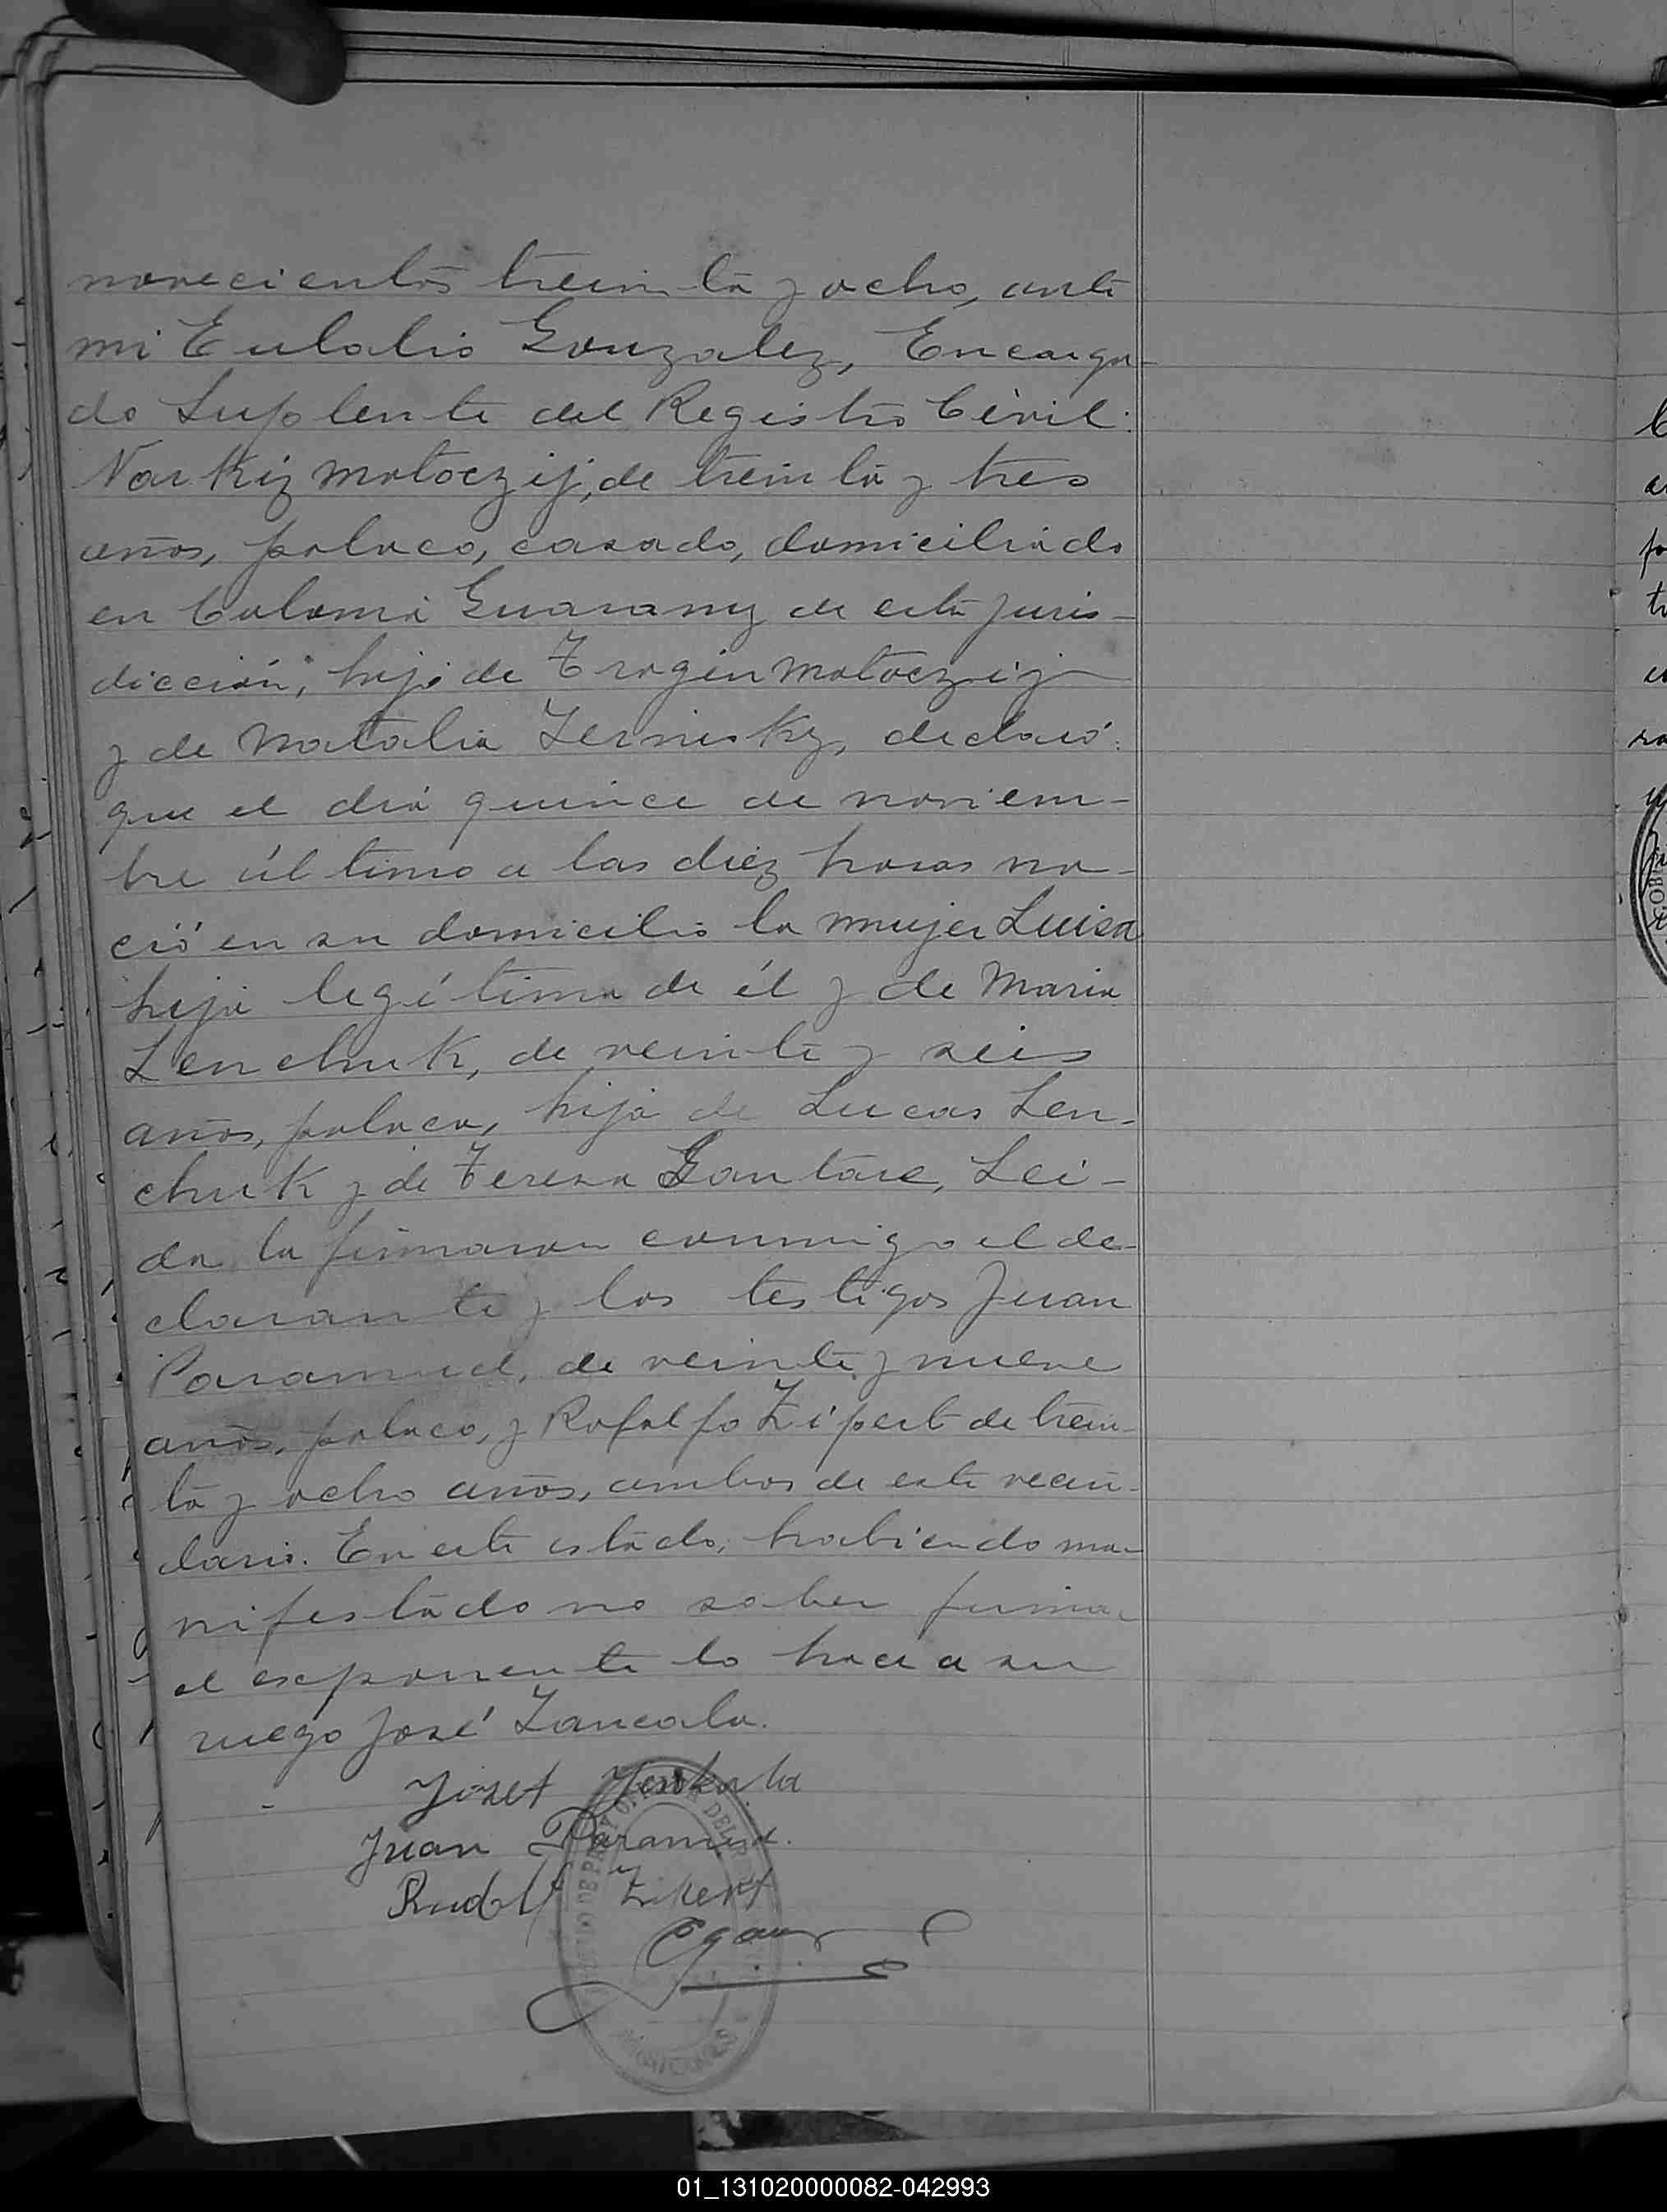 novecientos treinta y ocho, ante
mi Eulalio Gonzalez, Encarga-
do Suplente del Registro Civil:
Narkiz Motoczij, de treinta y tres
años, polaco, casado, domiciliado
en Colonia Guarany de esta juris-
dicción, hijo de Trogin Motoczij
y de Natalia Zernisky, declaró:
que el dia quince de noviem-
bre último a las diez horas na-
ció en su domicilio la mujer Luisa
hija legítima de él y de Maria
Lenchuk, de veinte y seis
años, polaca, hija de Lucas Len-
chuk y de Teresa Gontare, Lei-
da la firmaron conmigo el de-
clarante y los testigos Juan
Paramud, de veinte y nueve
años, polaco, y Rofolfo Zipert de trein-
ta y ocho años, ambos de este vecin-
dario. En este estado, habiendo ma-
nifestado no saber firmar
el exponente lo hace a su
ruego José Zancala.
Jozef
Juan Paramud.
Rudolf Zipert
Egonz